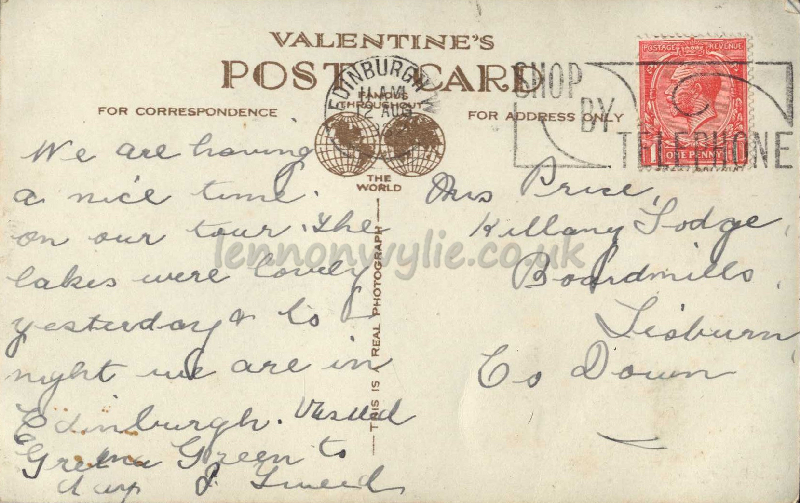 VALENTINE'S
POST CARD
EDINBURGH
11 AM
2 AUG
SHOP
BY
TELEPHONE
POSTAGE REVENUE
ONE PENNY
FAMOUS
THROUGHOUT
THE
WORLD
FOR CORRESPONDENCE
FOR ADDRESS ONLY
THIS IS A REAL PHOTOGRAPH
We are having
a nice time
on our tour. The
lakes were lovely
yesterday & to
night we are in
Edinburgh. Visited
Gretna Green to
day
Mrs Price,
Killany Lodge,
Boardmills,
Lisburn
Co Down
lennonwylie.co.uk